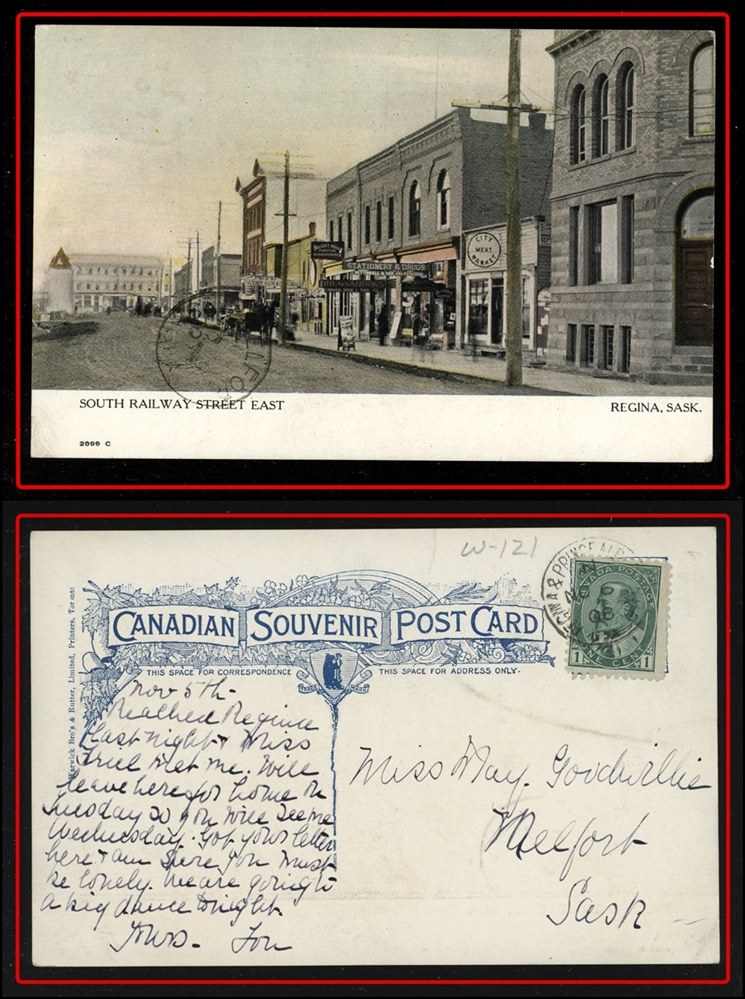 CITY
MEAT
MARKET
STATIONERY & DRUGS
SOUTH RAILWAY STREET EAST
REGINA, SASK.
2699 C
W-121
CANADIAN SOUVENIR POST CARD
THIS SPACE FOR CORRESPONDENCE
THIS SPACE FOR ADDRESS ONLY.
Warwick Bro's & Rutter, Limited, Printers, Toronto
CANADA POSTAGE
1 ONE CENT 1
Nov 5th -
Reached Regina
last night & Miss
met me. Will
leave here for home on
Tuesday so you will see me
Wednesday. Got your letter
here & am sure you must
be lonely. We are going to
a big dance tonight.
Mrs.
Miss May. Goodwillie
Melfort
Sask